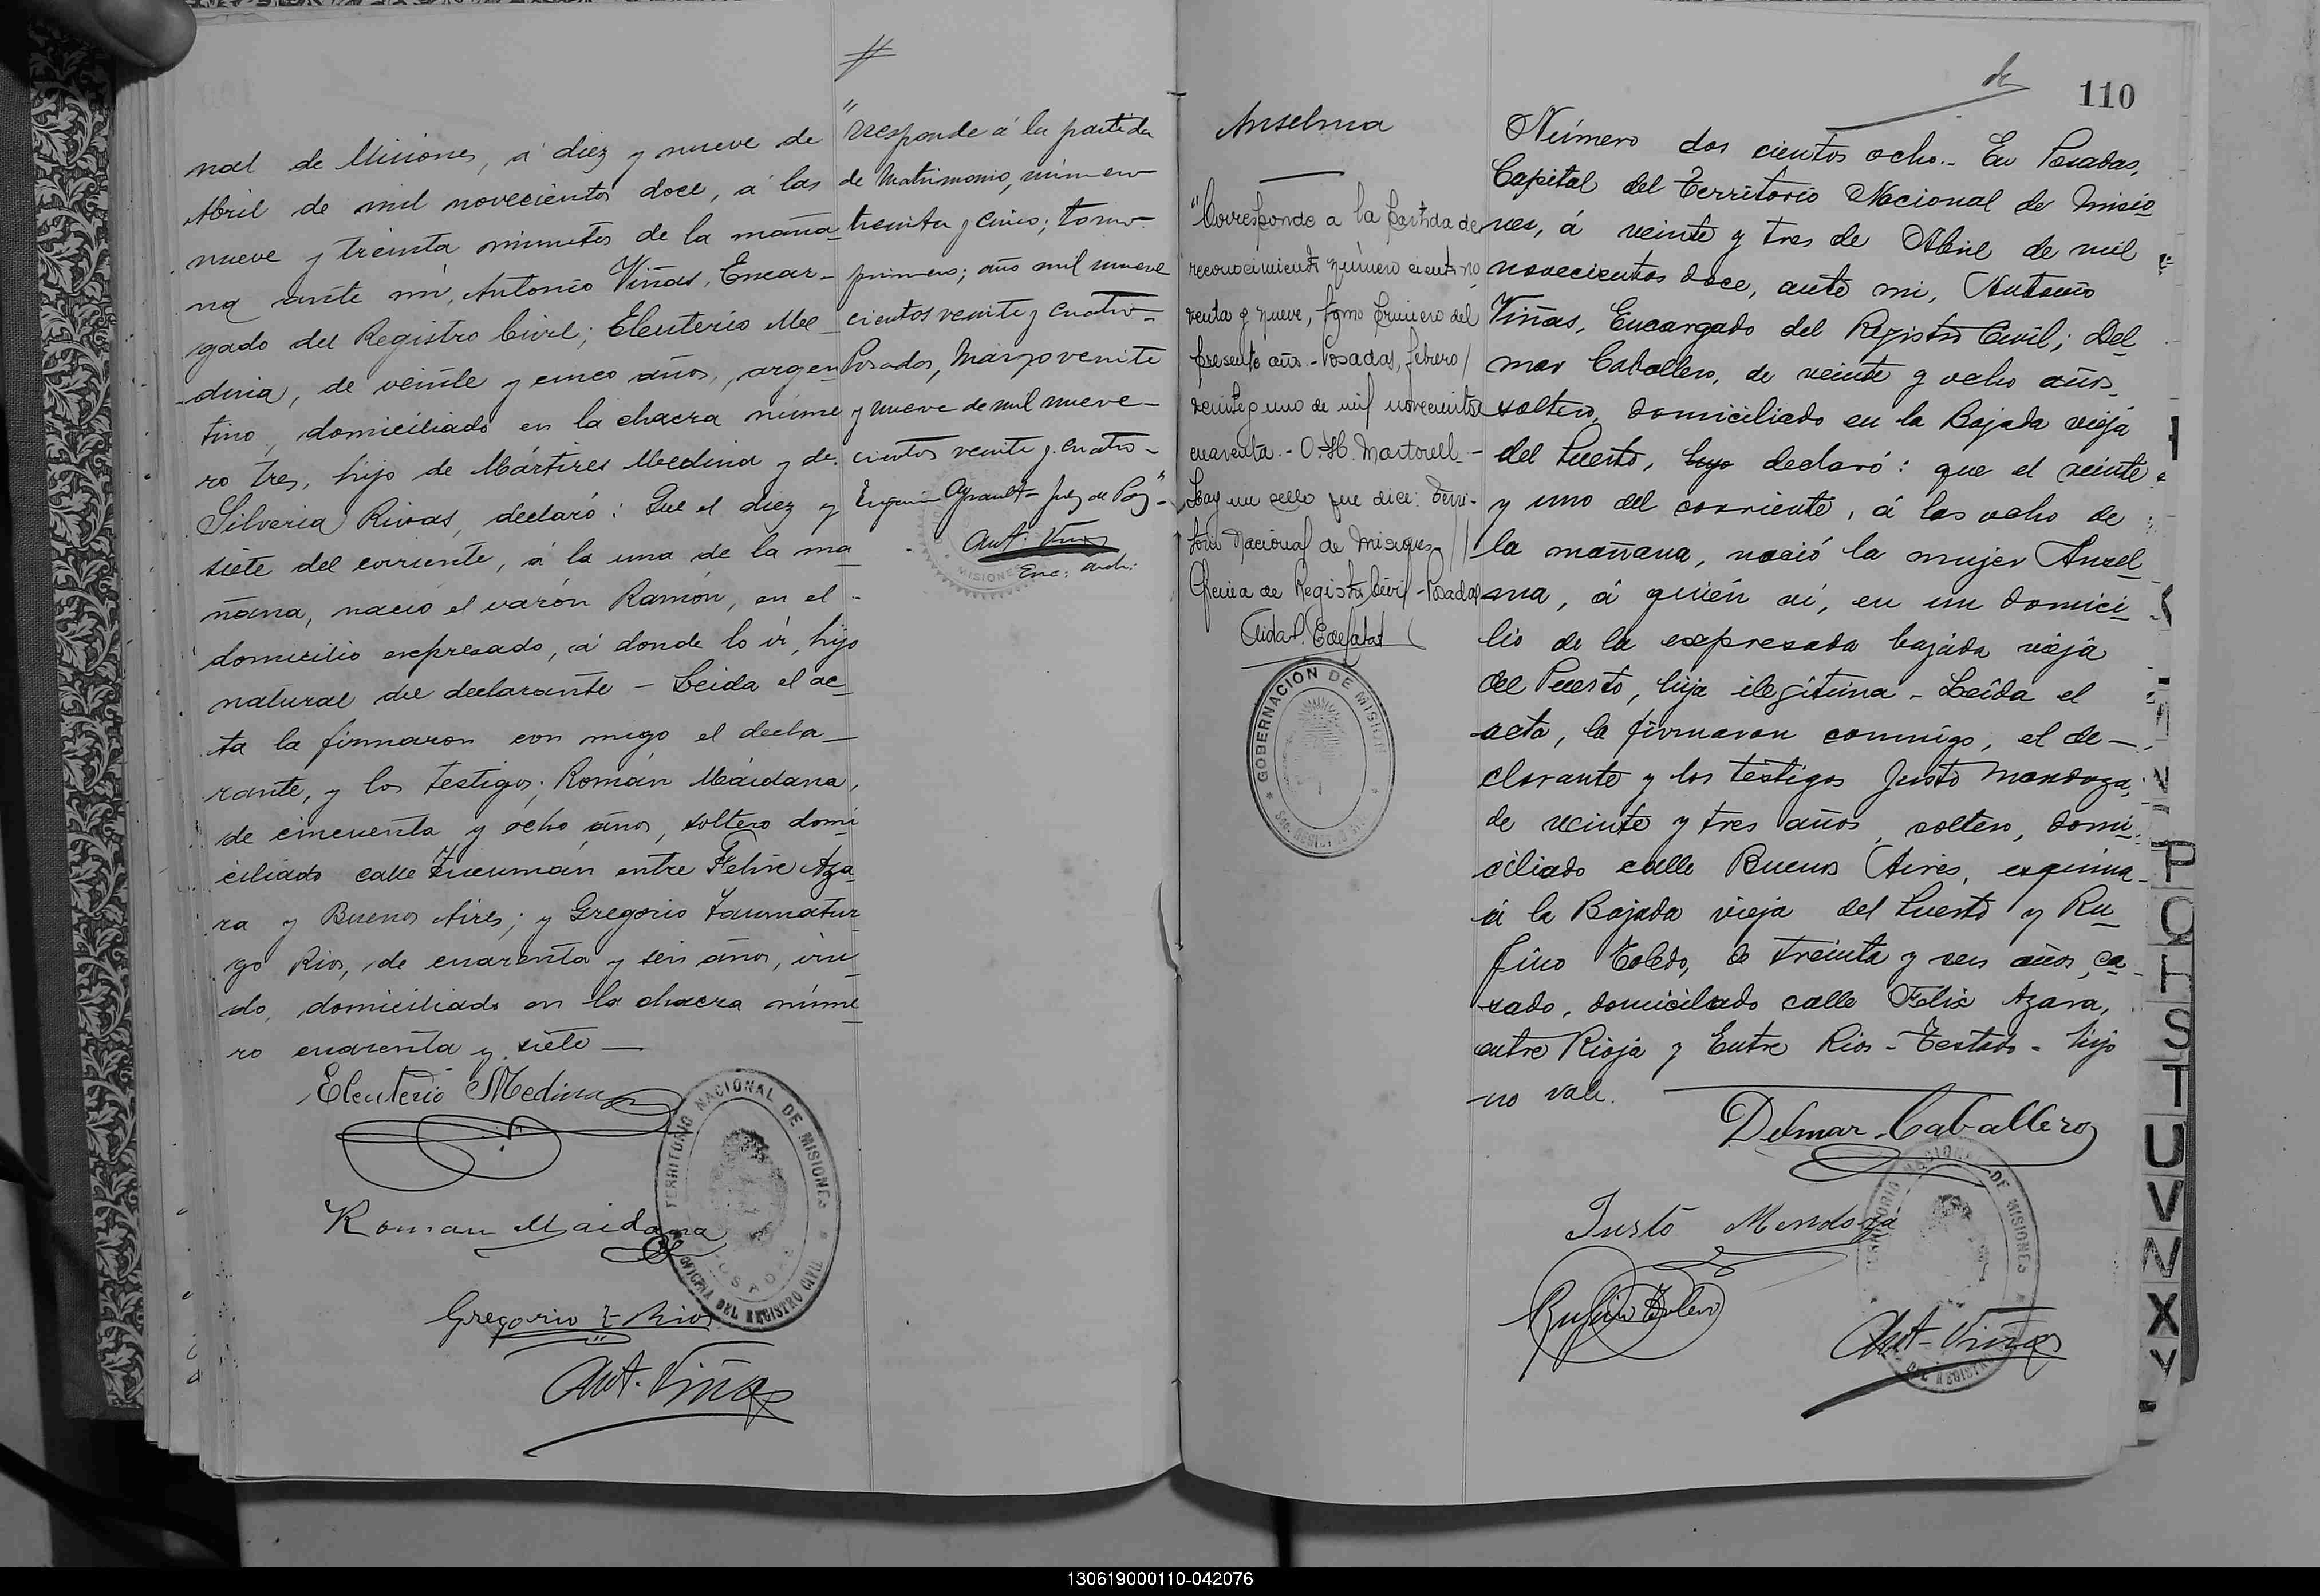 nal de Misiones, á diez y nueve de
Abril de mil novecientos doce, á las
nueve y treinta minutos de la maña
na ante mi, Antonio Viñas, Encar-
gado del Registro Civil; Eleuterio Me
dina, de veinte y cinco años, argen
tino, domiciliado en la chacra núme
ro tres, hijo de Mártires Medina y de
Silveria Rivas, declaró: Que el diez y
siete del corriente, á la una de la ma
ñana, nació el varón Ramón, en el -
domicilio expresado, á donde lo ví, hijo
natural del declarante - Leida el ac
ta la firmaron con migo el decla-
rante, y los testigos; Román Maidana,
de cincuenta y ocho años, soltero domi
ciliado calle Tucumán entre Felix Aza
ra y Buenos Aires; y Gregorio Taumatur
go Rios, de cuarenta y seis años, viu
do, domiciliado en la chacra núme
ro cuarenta y siete -
Eleuterio Medina
Roman Maidana
Gregorio T- Rios
Ant. Viñas
TERRITORIO NACIONAL DE MISIONES
POSADAS
OFICINA DEL REGISTRO CIVIL
"rresponde á la partida
de Matrimonio, número
treinta y cinco; tomo
primero; año mil nueve
cientos veinte y cuatro-
Posadas, Marzo veinte
y nueve de mil nueve-
cientos veinte y cuatro-
Juez de Paz"-
Ant. Viñas
Enc:
MISIONES
110
Anselma
"Corresponde a la partida de
reconocimiento número ciento no
venta y nueve, tomo primero del
presente año.- Posadas, febrero
veinte y uno de mil novecientos
cuarenta.- O. H. Martorell.-
Hay un sello que dice: Terri-
torio Nacional de Misiones-
Oficina de Registro Civil - Posadas
GOBERNACION DE MISIONES
Número dos cientos ocho.- En Posadas,
Capital del Territorio Nacional de Misio
nes, á veinte y tres de Abril de mil
novecientos doce, ante mi, Antonio
Viñas, Encargado del Registro Civil; Del
mar Caballero, de veinte y ocho años
soltero, domiciliado en la Bajada vieja
del Puerto, hijo declaró: que el veinte
y uno del corriente, á las ocho de
la mañana, nació la mujer Ansel
ma, á quién ví, en un domici-
lio de la expresada bajada vieja
del Puerto, hija ilegítima - Leída el
acta, la firmaron conmigo, el de-
clarante y los testigos Justo Mendoza,
de veinte y tres años, soltero, domi
ciliado calle Buenos Aires, esquina
á la Bajada vieja del Puerto y Ru
fino Toledo, de treinta y seis años, ca
sado, domicilado calle Félix Azara,
entre Rioja y Entre Rios - Testado - hijo
-no vale.
Delmar Caballero
Justo Mendoza
Rufino Toledo
Ant- Viñas
TERRITORIO NACIONAL DE MISIONES
DEL REGISTRO
P
Q
H
S
T
U
V
X
Y
130619000110-042076